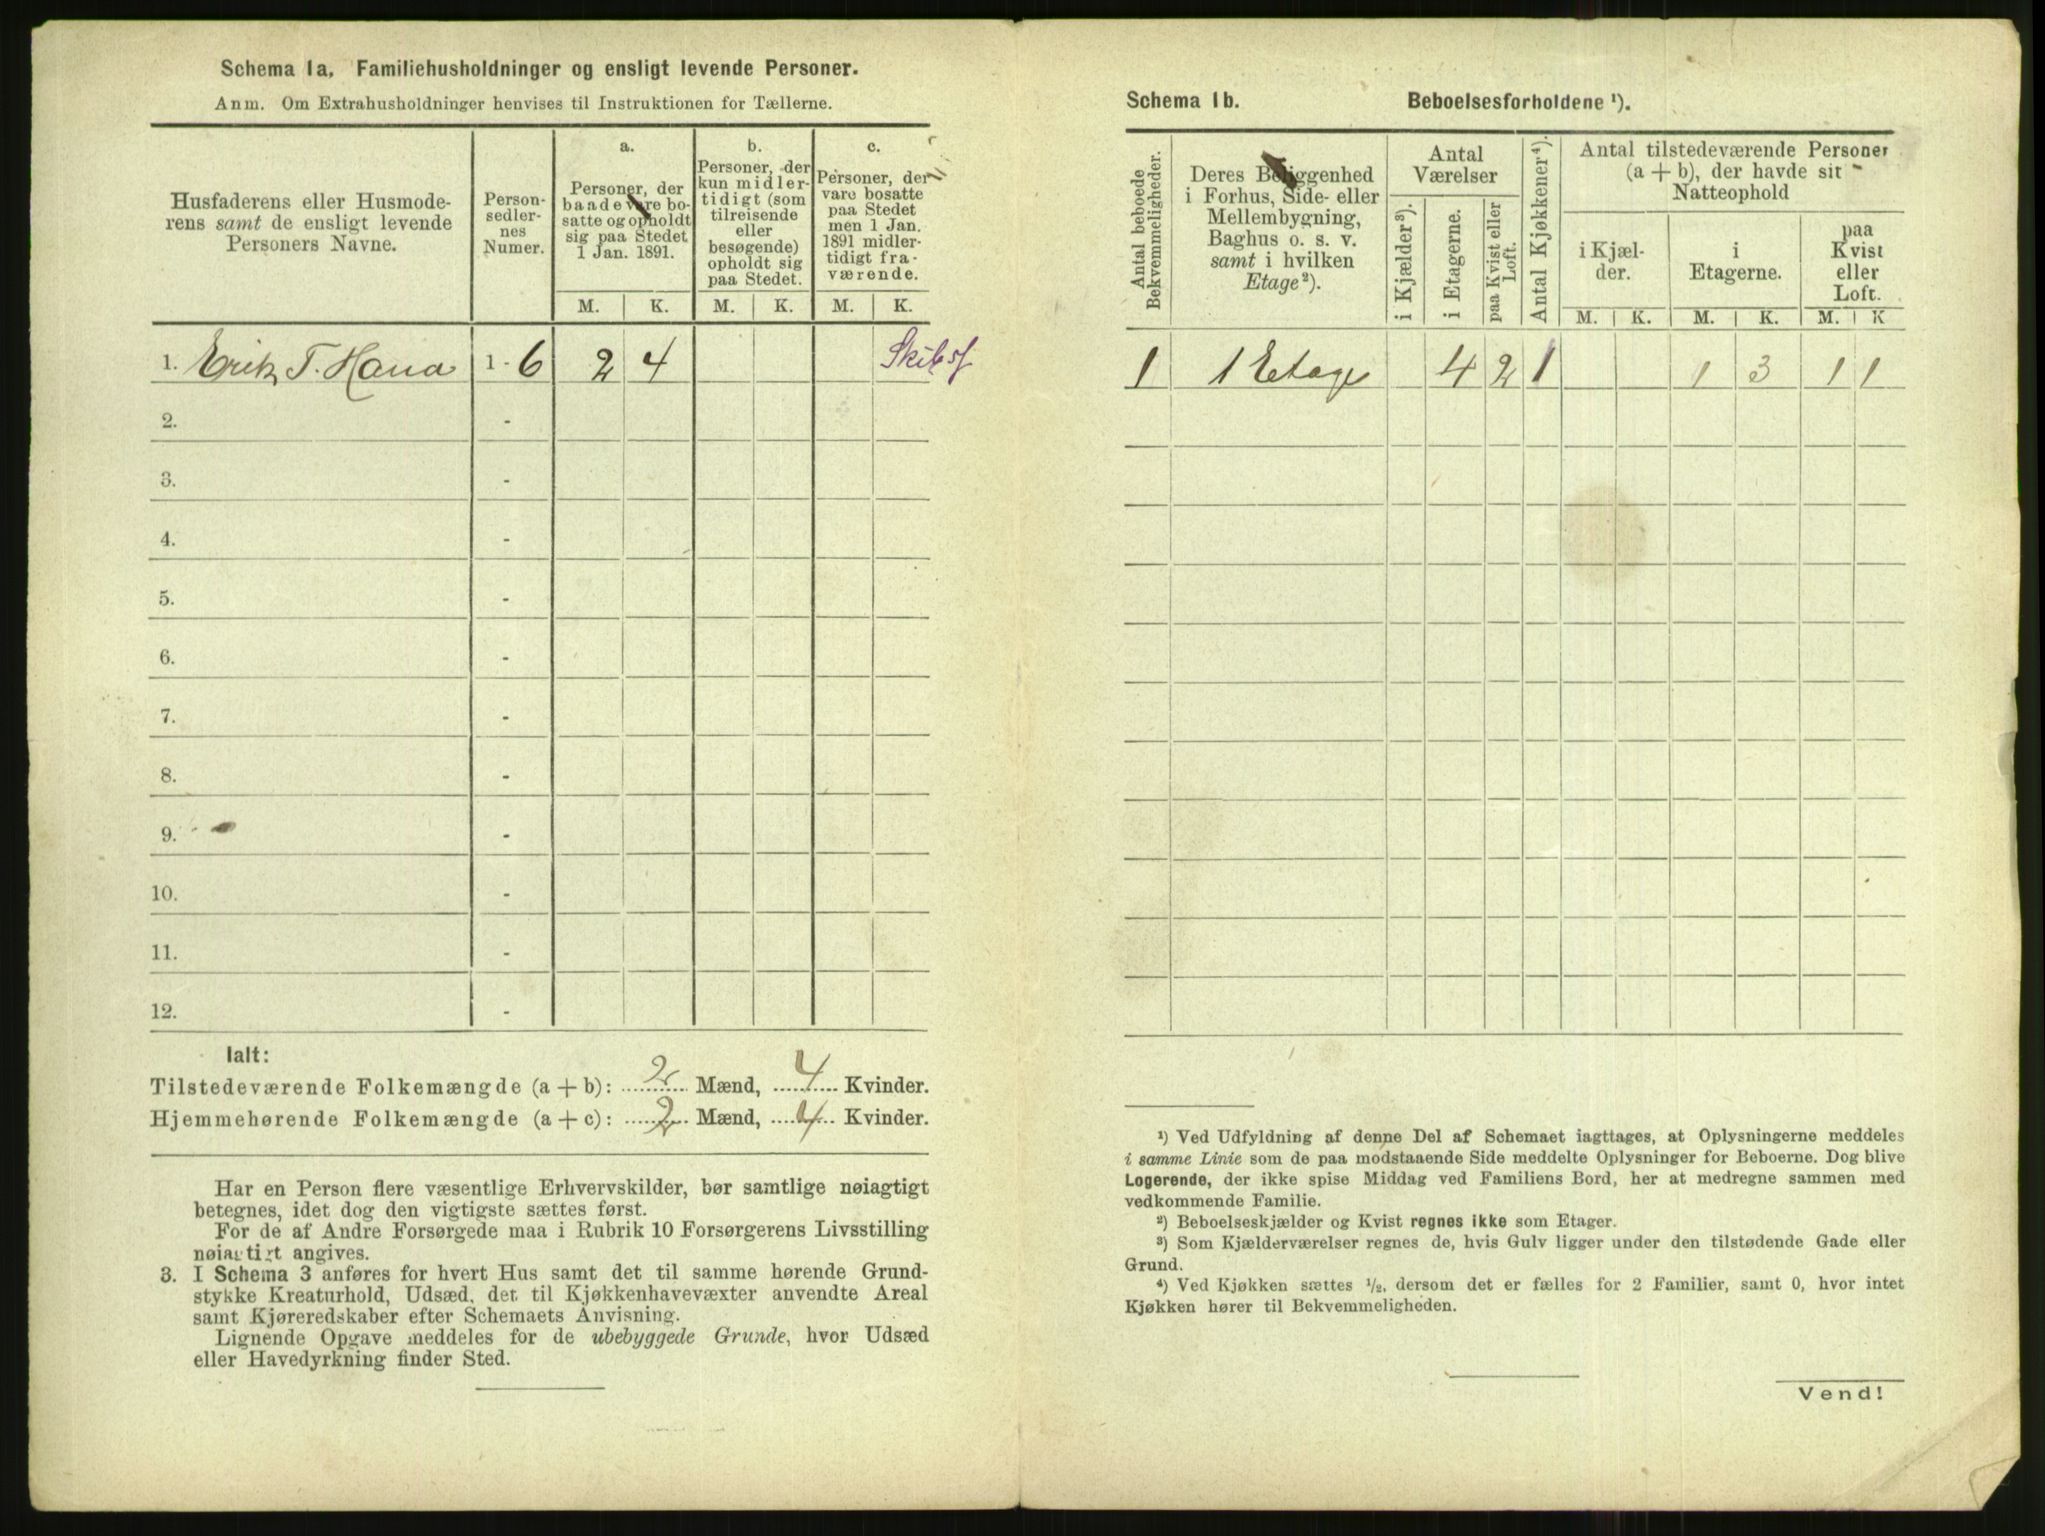 Schema 1a. Familiehusholdninger og ensligt levende Personer.
Anm. Om Extrahusholdninger henvises til Instruktionen for Tællerne.
Husfaderens eller Husmode-
rens samt de ensligt levende
Personers Navne.
Person-
sedler-
nes
Numer.
a.
Personer, der
baade vare bo-
satte og opholdt
sig paa Stedet
1 Jan. 1891.
b.
Personer, der
kun midler-
tidigt (som
tilreisende
eller
besøgende)
opholdt sig
paa Stedet.
c.
Personer, der
vare bosatte
paa Stedet
men 1 Jan.
1891 midler-
tidigt fra-
værende.
M. K. M. K. M. K.
1. Erik T. Hana 1 - 6 2 4
2. -
3. -
4. -
5. -
6. -
7. -
8. -
9. -
10. -
11. -
12. -
Ialt:
Tilstedeværende Folkemængde (a + b): 2 Mænd, 4 Kvinder.
Hjemmehørende Folkemængde (a + c): 2 Mænd, 4 Kvinder.
Har en Person flere væsentlige Erhvervskilder, bør samtlige nøiagtigt
betegnes, idet dog den vigtigste sættes først.
For de af Andre Forsørgede maa i Rubrik 10 Forsørgerens Livsstilling
nøiagtigt angives.
3. I Schema 3 anføres for hvert Hus samt det til samme hørende Grund-
stykke Kreaturhold, Udsæd, det til Kjøkkenhavevæxter anvendte Areal
samt Kjøreredskaber efter Schemaets Anvisning.
Lignende Opgave meddeles for de ubebyggede Grunde, hvor Udsæd
eller Havedyrkning finder Sted.
Schema 1b. Beboelsesforholdene ¹).
Antal beboede
Bekvemmeligheder.
Deres Beliggenhed
i Forhus, Side- eller
Mellembygning,
Baghus o. s. v.
samt i hvilken
Etage²).
Antal
Værelser
i Kjælder³).
i Etagerne.
paa Kvist eller
Loft.
Antal Kjøkkener⁴).
Antal tilstedeværende Personer
(a + b), der havde sit
Natteophold
i Kjæl-
der.
i
Etagerne.
paa
Kvist
eller
Loft.
M. K. M. K. M. K
1 1 Etage 4 2 1 1 3 1 1
¹) Ved Udfyldning af denne Del af Schemaet iagttages, at Oplysningerne meddeles
i samme Linie som de paa modstaaende Side meddelte Oplysninger for Beboerne. Dog blive
Logerende, der ikke spise Middag ved Familiens Bord, her at medregne sammen med
vedkommende Familie.
²) Beboelseskjælder og Kvist regnes ikke som Etager.
³) Som Kjælderværelser regnes de, hvis Gulv ligger under den tilstødende Gade eller
Grund.
⁴) Ved Kjøkken sættes ½, dersom det er fælles for 2 Familier, samt 0, hvor intet
Kjøkken hører til Bekvemmeligheden.
Vend!